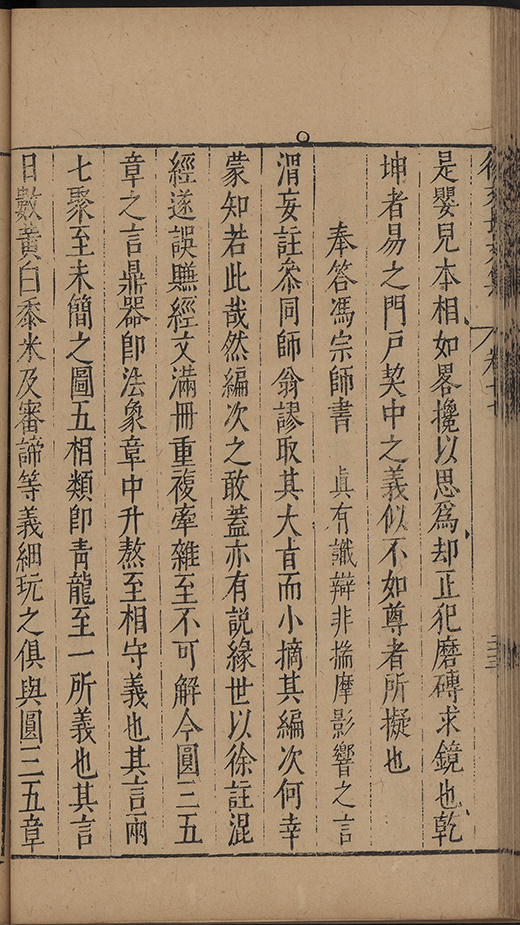 徐文長文集
卷十七
是嬰見本相如畧攙以思爲却止犯磨磚求鏡也乾
坤者易之門戸契中之義似不如尊者所擬也
奉答馮宗師書 眞有識辯非揣摩影響之言
渭妄註叅同師翁謬取其大旨而小摘其編次何幸
蒙知若此哉然編次之敢蓋亦有説緣世以徐註混
經遂誤賺經文滿冊重複牽雜至不可解今圓三五
章之言鼎器卽法象章中升熬至相守義也其言兩
七聚至未簡之圖五相類卽青龍至一所義也其言
日數黃白黍米及審諦等義細玩之俱與圓三五章